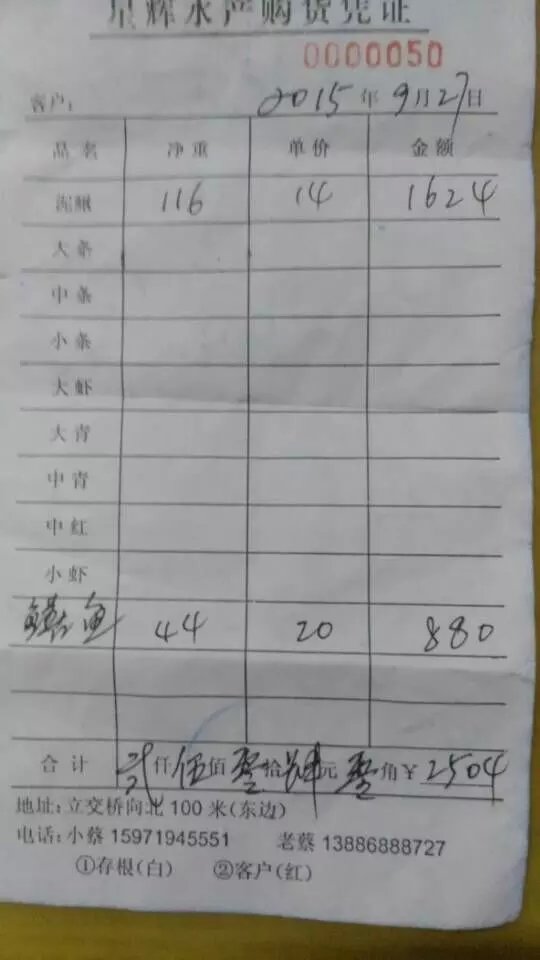 星辉水产购货凭证
0000050
客户: 2015年9月27日
品名 净重 单价 金额
泥鳅 116 14 1624
大条
中条
小条
大虾
大青
中青
中红
小虾
鳝鱼 44 20 880
合计 贰仟伍佰零拾肆元零角¥2504
地址:立交桥向北100米(东边)
电话:小蔡 15971945551 老蔡 13886888727
①存根(白) ②客户(红)